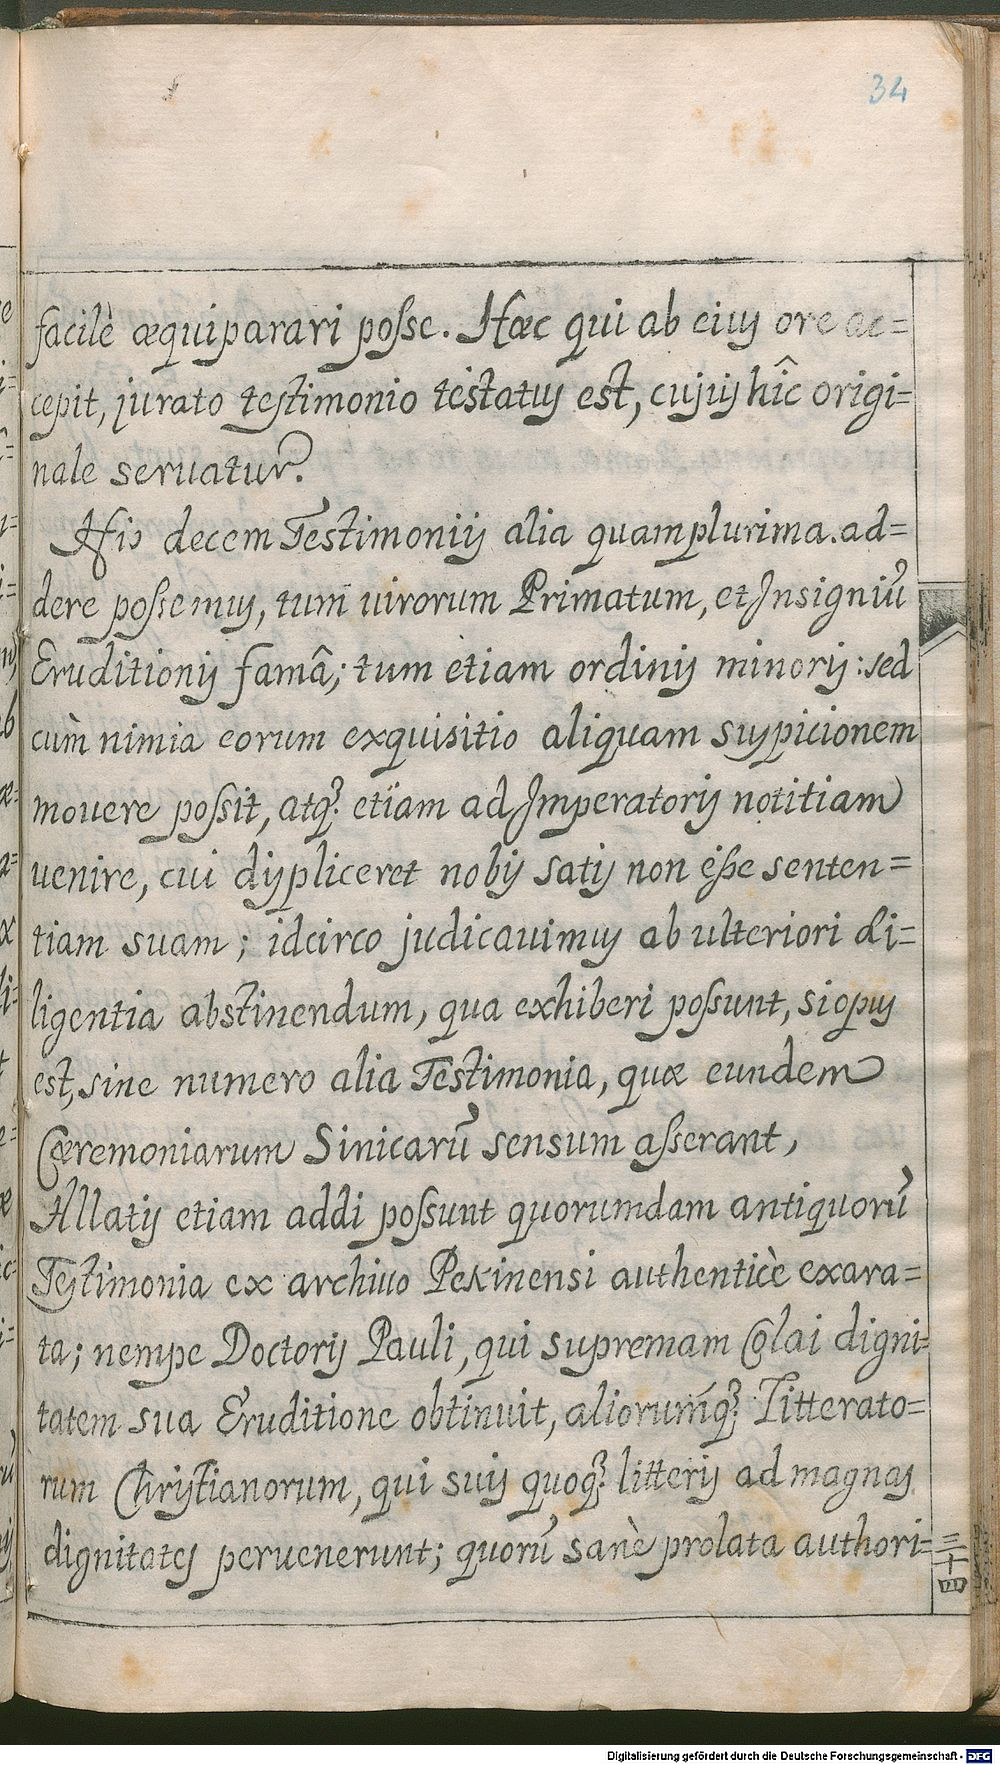 34
facilè æquiparari posse. Hæc qui ab eius ore ac=
cepit, jurato testimonio testatus est, cujus hîc origi=
nale seruatur.
His decem Testimonijs alia quamplurima ad=
dere possemus, tum uirorum Primatum, et Insigniū
Eruditionis famâ; tum etiam ordinis minoris: sed
cùm nimia eorum exquisitio aliquam suspicionem
mouere possit, atq; etiam ad Imperatoris notitiam
uenire, cui displiceret nobis satis non esse senten=
tiam suam; idcirco judicauimus ab ulteriori di=
ligentia abstinendum, qua exhiberi possunt, si opus
est, sine numero alia Testimonia, quæ eundem
Cæremoniarum Sinicarū sensum asserant,
Allatis etiam addi possunt quorumdam antiquorū
Testimonia ex archiuo Pekinensi authenticè exara=
ta; nempe Doctoris Pauli, qui supremam Colai digni=
tatem sua Eruditione obtinuit, aliorumq; Litterato=
rum Christianorum, qui suis quoq; litteris ad magnas
dignitates peruenerunt; quorū sanè prolata authori=
三十四
Digitalisierung gefördert durch die Deutsche Forschungsgemeinschaft - DFG